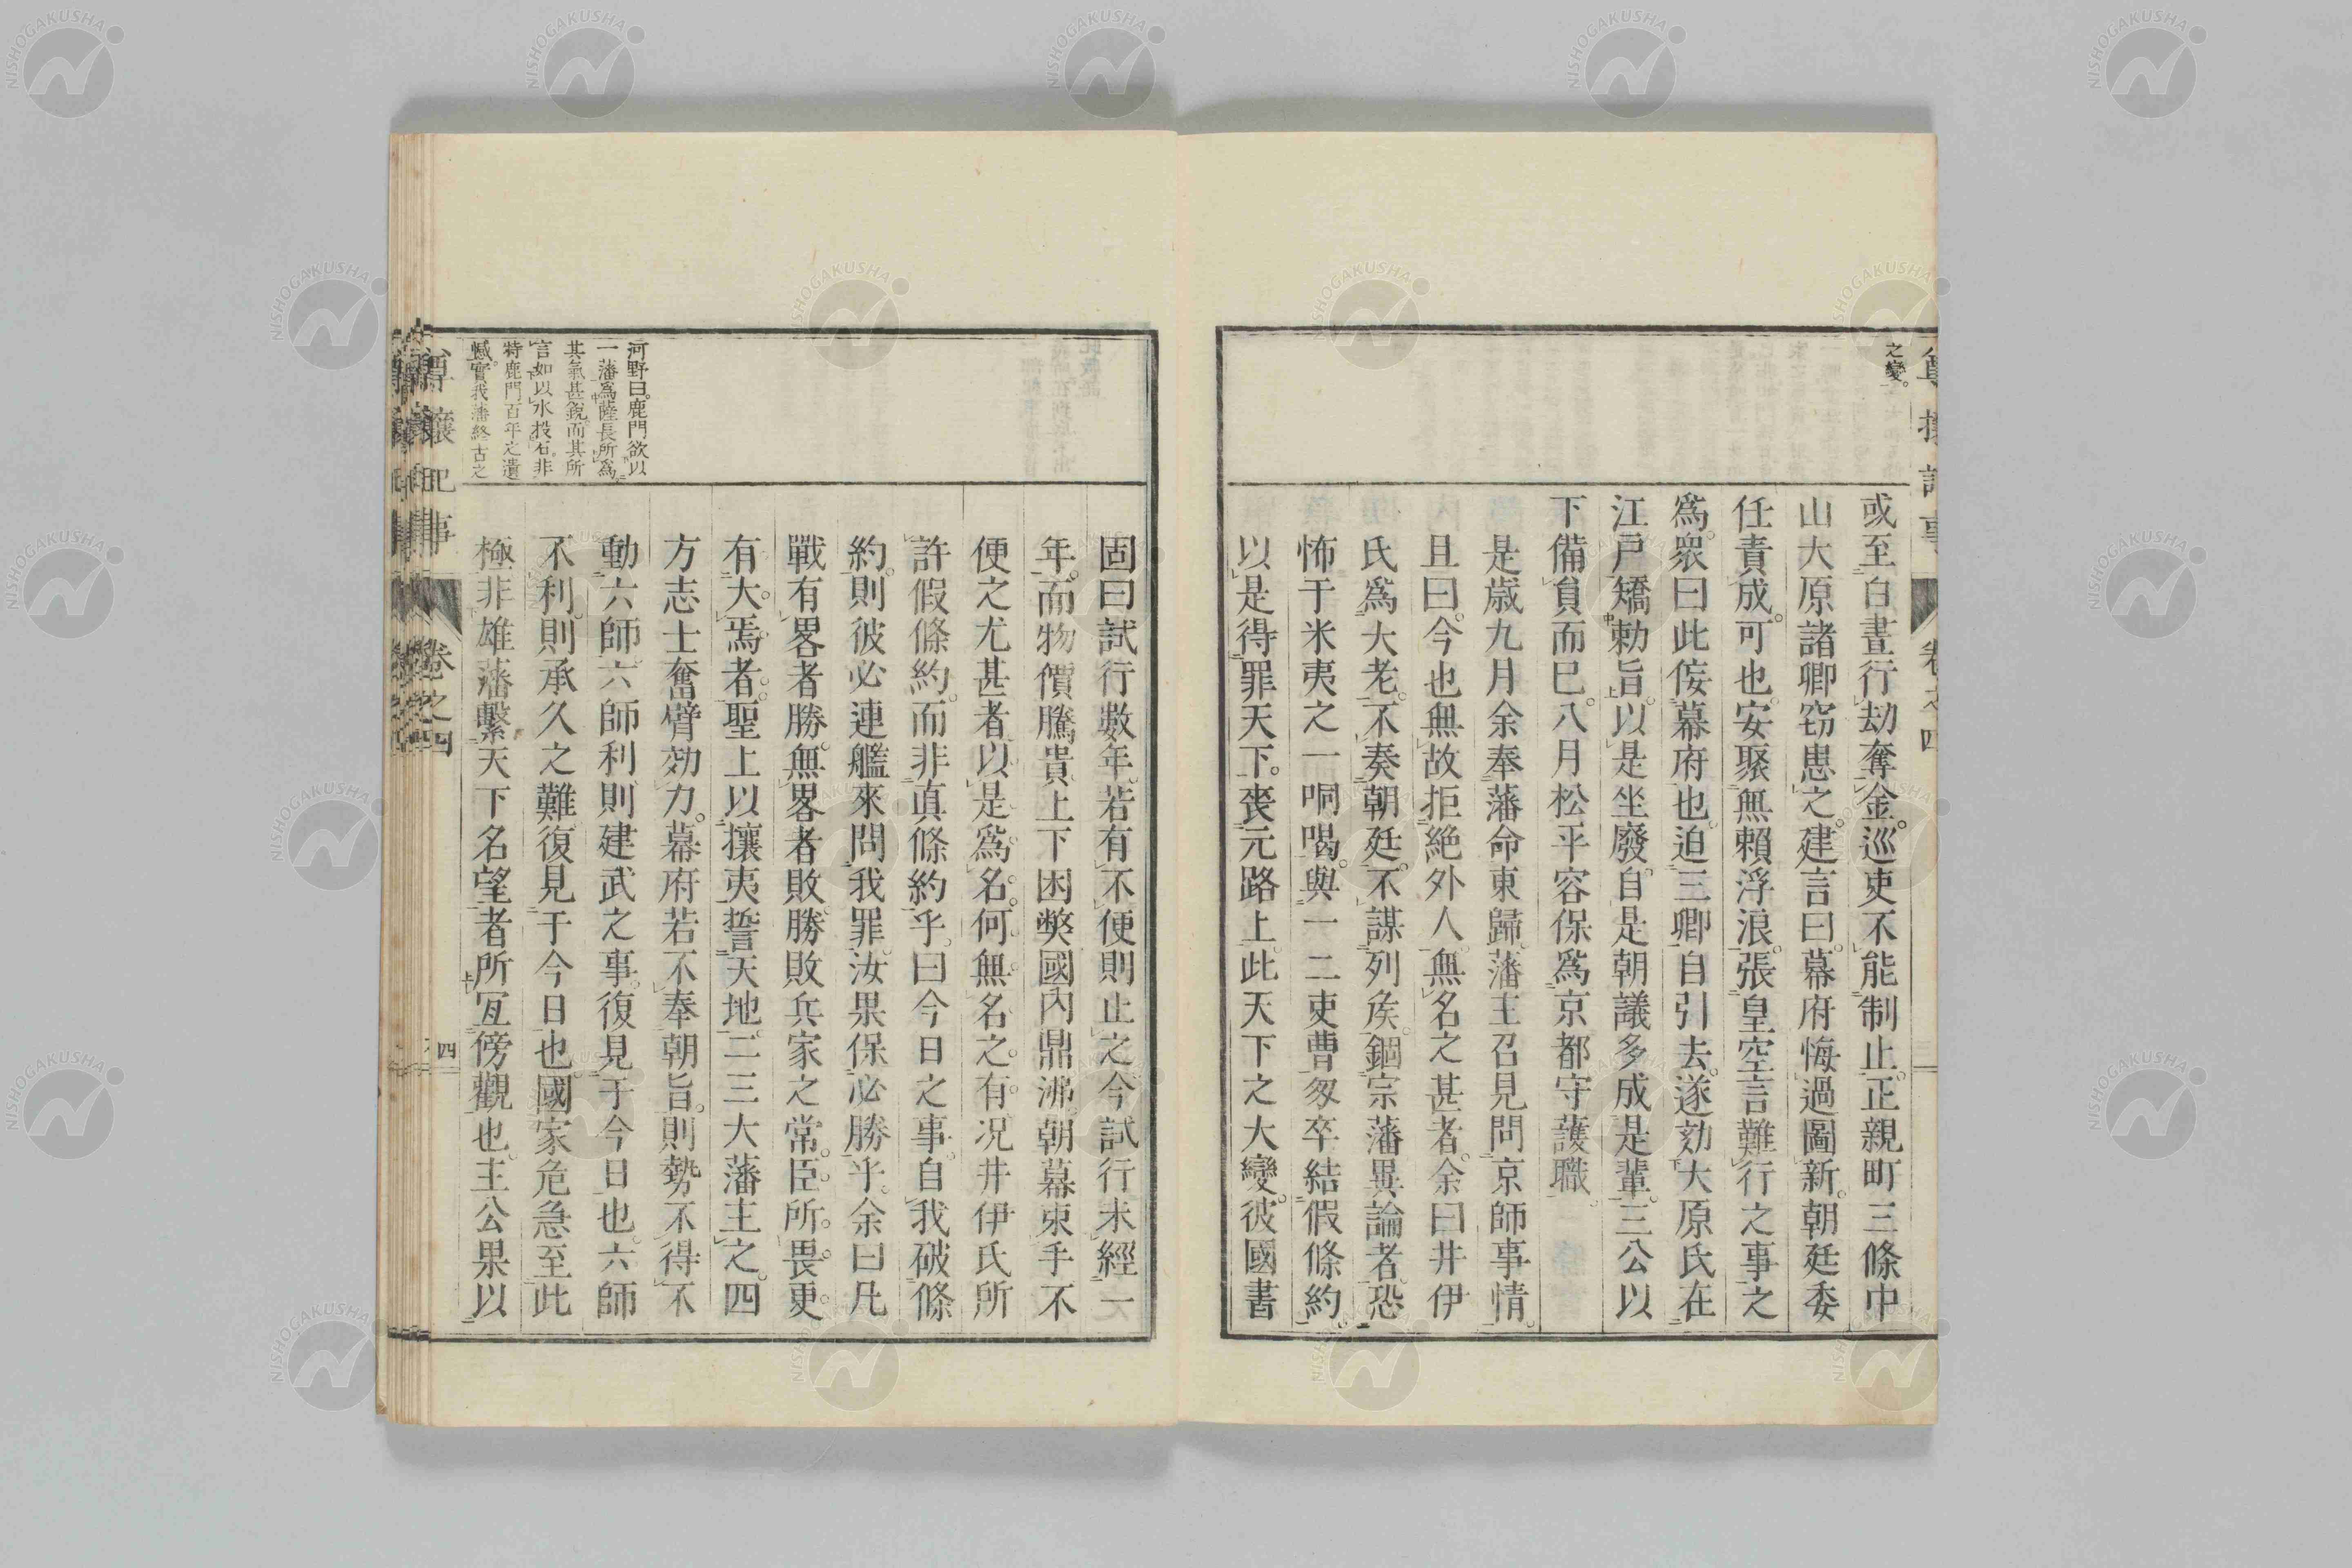 之變。
或至白晝行劫奪金。巡吏不能制止。正親町三條中
山大原諸卿窃患之。建言曰。幕府悔過圖新。朝廷委
任責成。可也。安聚無賴浮浪。張皇空言難行之事之
爲。衆曰此侫幕府也。迫三卿自引去。遂効大原氏在
江戸矯勅旨。以是坐廢。自是朝議多成是輩。三公以
下備員而巳。八月松平容保爲京都守護職
是歳九月余奉藩命東歸。藩主召見問京師事情。
且曰。今也無故拒絶外人。無名之甚者。余曰井伊
氏爲大老。不奏朝廷。不謀列矦。錮宗藩異論者。恐
怖于米夷之一哃喝。與一二吏曹匆卒結假條約。
以是得罪天下。喪元路上。此天下之大變。彼國書
固曰試行數年。若有不便則止之。今試行未經一
年。而物價騰貴。上下困弊。國內鼎沸。朝幕束手。不
便之尤甚者。以是爲名。何無名之有。况井伊氏所
許假條約。而非真條約乎。曰今日之事。自我破條
約。則彼必連艦來問我罪。汝果保必勝乎。余曰凡
戰有畧者勝。無畧者敗。勝敗兵家之常。臣所畏。更
有大焉者。聖上以攘夷誓天地。二三大藩主之。四
方志士奮臂効力。幕府若不奉朝旨。則勢不得不
動六師。六師利則建武之事。復見于今日也。六師
不利。則承久之難。復見于今日也。國家危急至此
極。非雄藩繫天下名望者所冝傍觀也。主公果以
河野曰。鹿門欲以
一藩爲薩長所爲
其氣甚銳。而其所
言如以水投石。非
特鹿門百年之遺
憾。實我藩終古之
尊攘紀事
卷之四
四